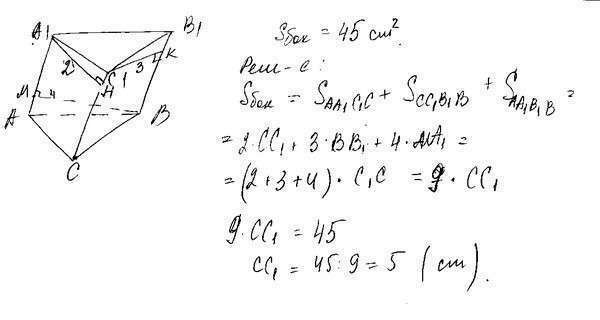 A1
B1
2
C1
3
K
H
M
4
A
B
C
Sбок = 45 cm².
Реш-е:
Sбок = SAA₁C₁C + SCC₁B₁B + SAA₁B₁B =
= 2·CC₁ + 3·BB₁ + 4·AA₁ =
= (2+3+4)·C₁C = 9·CC₁
9·CC₁ = 45
CC₁ = 45:9 = 5 (cm).